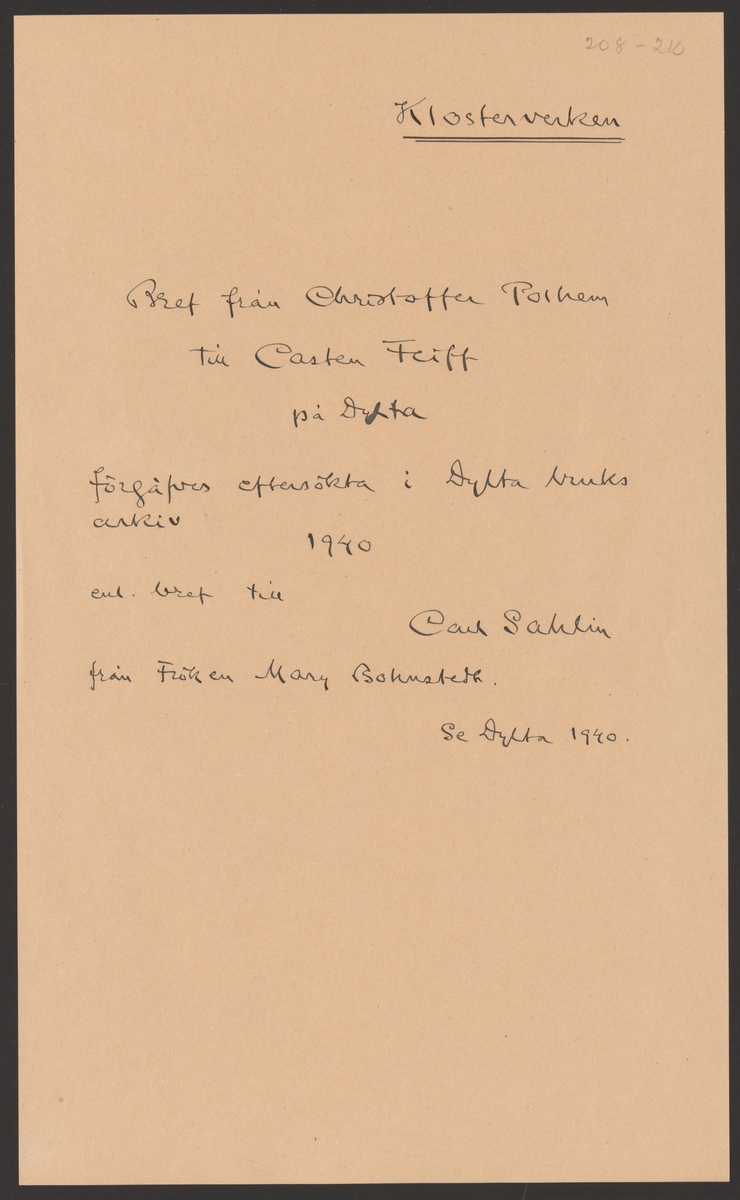 208-210
Klosterverken
Bref från Christoffer Polhem
till Casten Feiff
på Dylta
förgäfves eftersökta i Dylta bruks
arkiv
1940
enl. bref till
Carl Sahlin
från Fröken Mary Bohnstedt.
Se Dylta 1940.